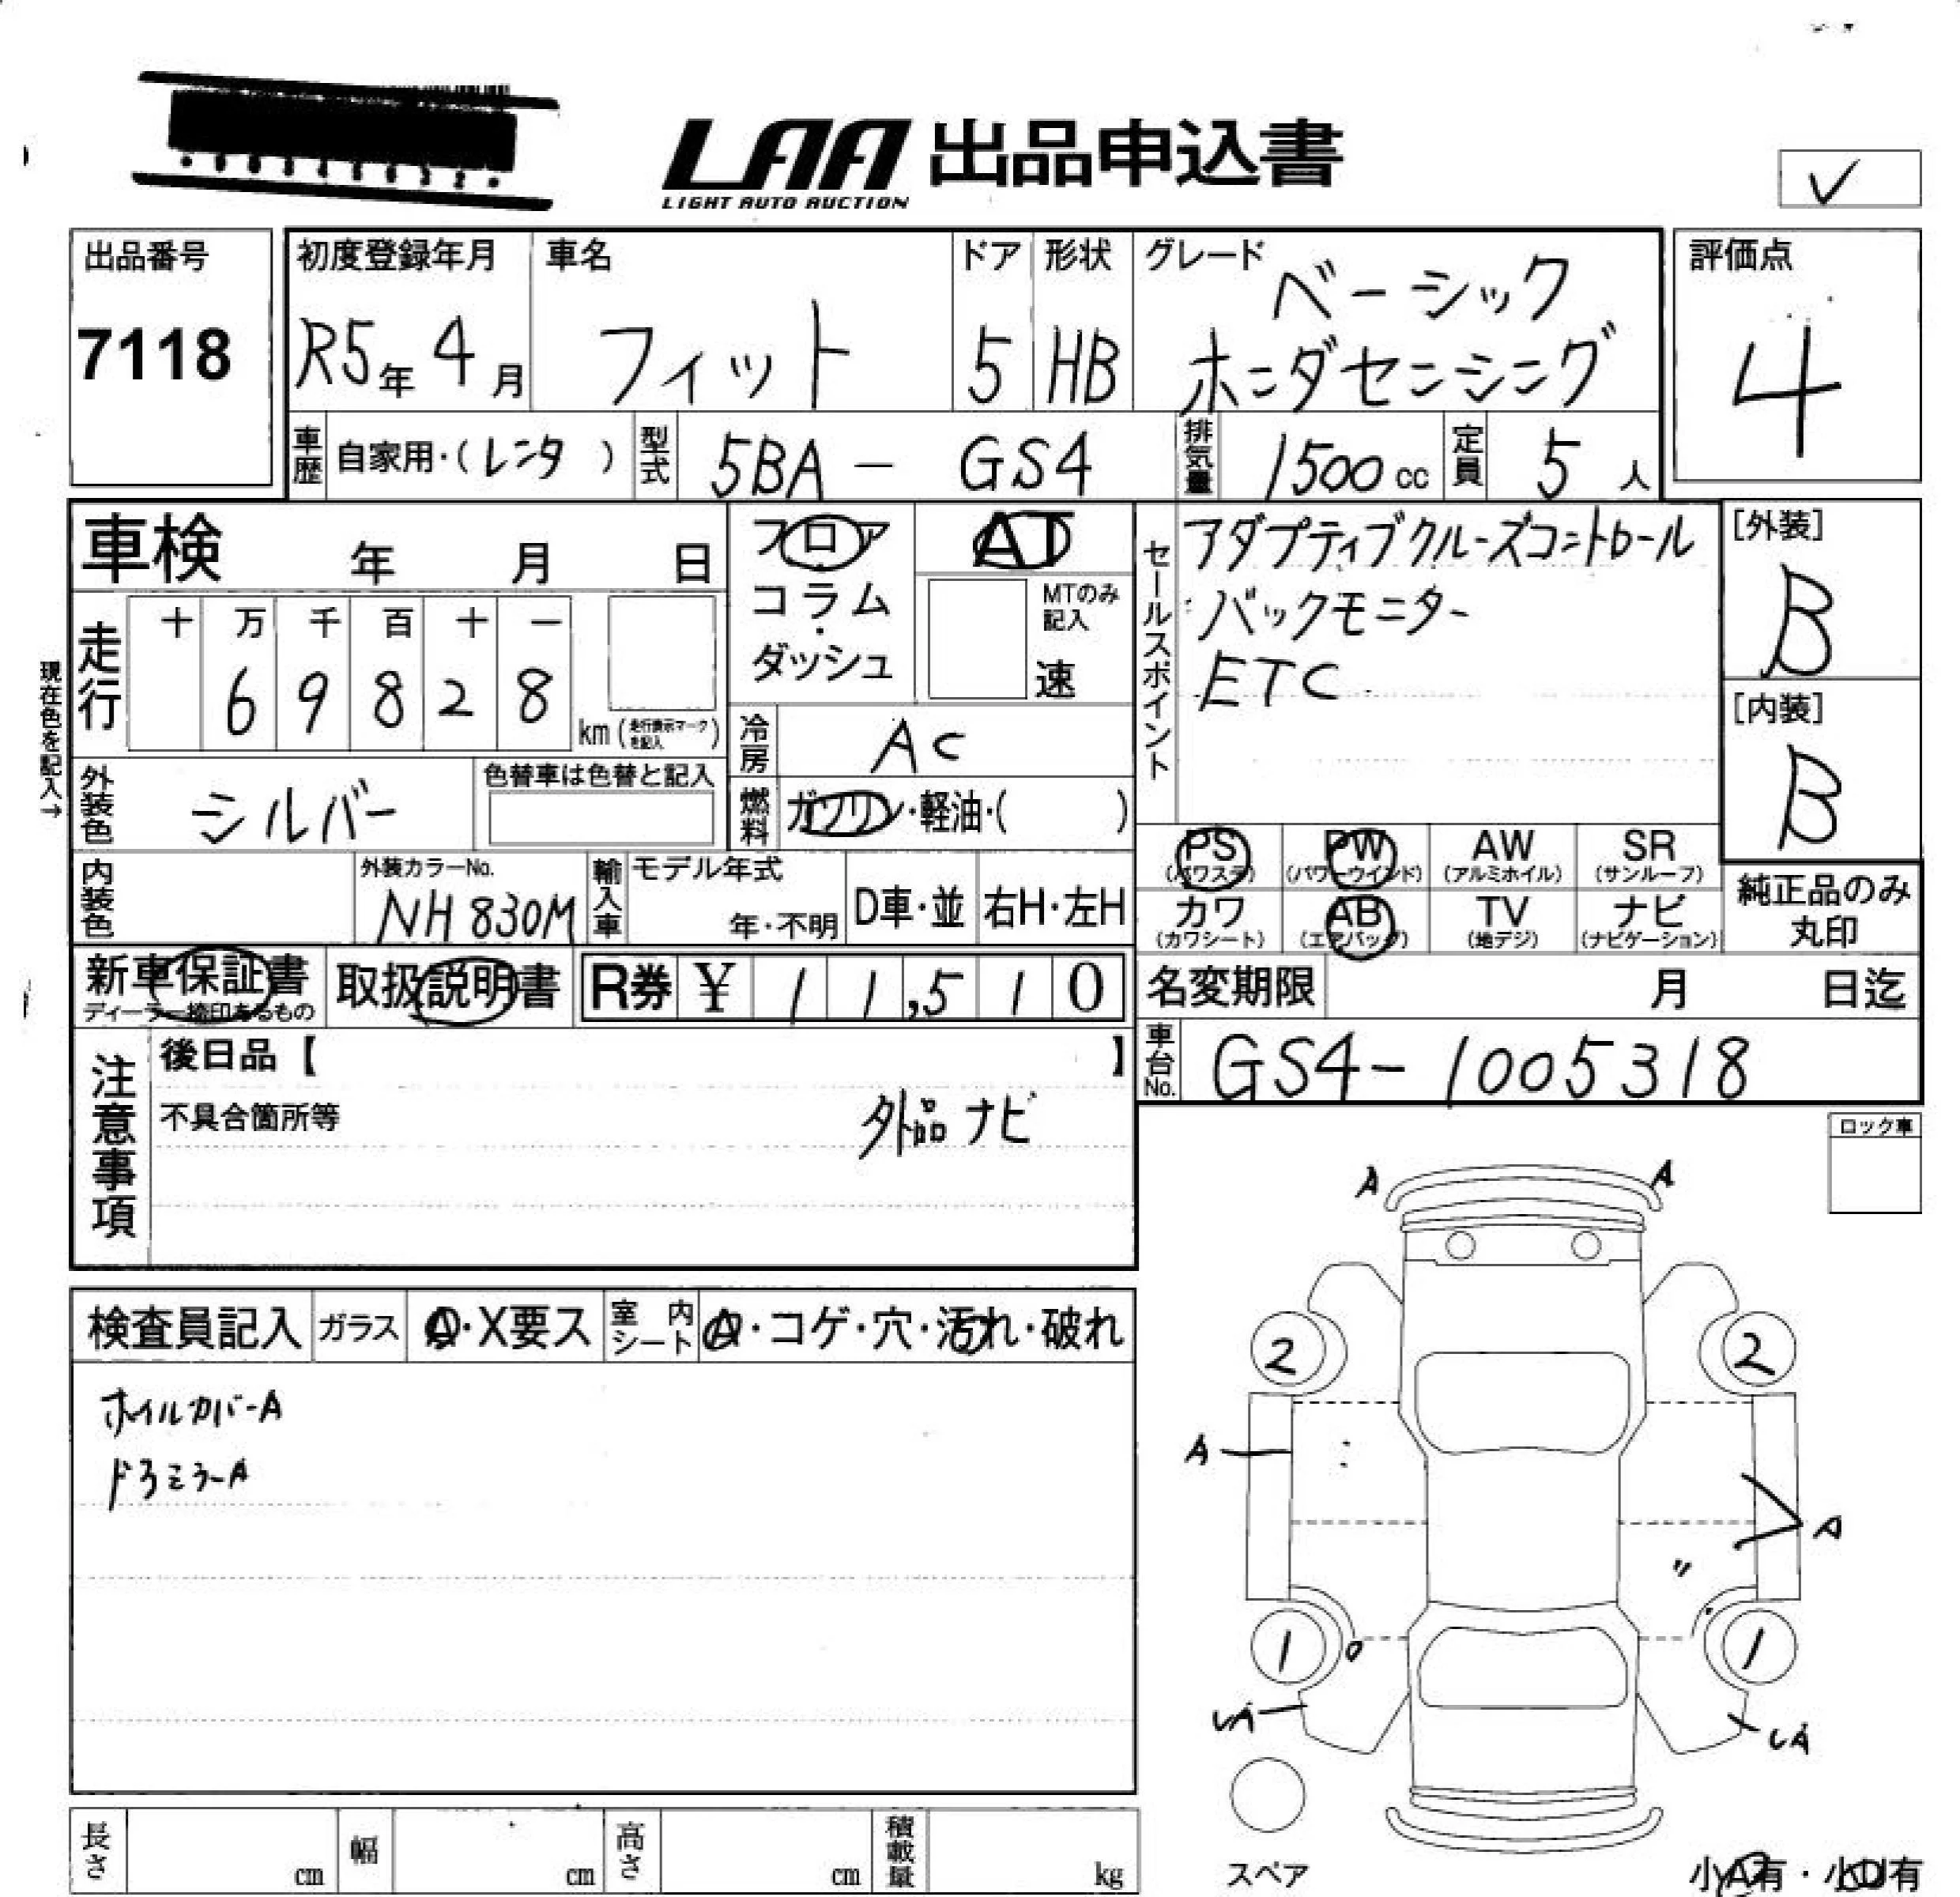 LAA 出品申込書
LIGHT AUTO AUCTION
✓
出品番号
7118
初度登録年月
R5年 4月
車名
フィット
ドア
5
形状
HB
グレード
ベーシック
ホンダセンシング
評価点
4
車歴 自家用・(レンタ)
型式 5BA - GS4
排気量 1500cc
定員 5人
車検 年 月 日
フロア・コラム・ダッシュ
AT
MTのみ記入
速
セールスポイント
アダプティブクルーズコントロール
バックモニター
ETC
[外装]
B
[内装]
B
現在色を記入→
走行
十 万 千 百 十 一
6 9 8 2 8
km (走行表示マークを記入)
冷房 AC
燃料 ガソリン・軽油・( )
外装色 シルバー
色替車は色替と記入
内装色
外装カラーNo.
NH 830M
輸入車
モデル年式
年・不明
D車・並
右H・左H
PS (パワステ)
PW (パワーウインド)
AW (アルミホイル)
SR (サンルーフ)
カワ (カワシート)
AB (エアバッグ)
TV (地デジ)
ナビ (ナビゲーション)
純正品のみ
丸印
新車保証書
ディーラー捺印あるもの
取扱説明書
R券 ¥ 11,510
名変期限 月 日迄
車台No. GS4-1005318
注意事項
後日品【 】
不具合箇所等
外品ナビ
ロック車
検査員記入
ガラス A・X要ス
室内シート A・コゲ・穴・汚れ・破れ
ホイルカバーA
ドアミラーA
A A
2 2
A
A
〃
1 1
A
A
スペア
小A有・小U有
長さ cm
幅 cm
高さ cm
積載量 kg